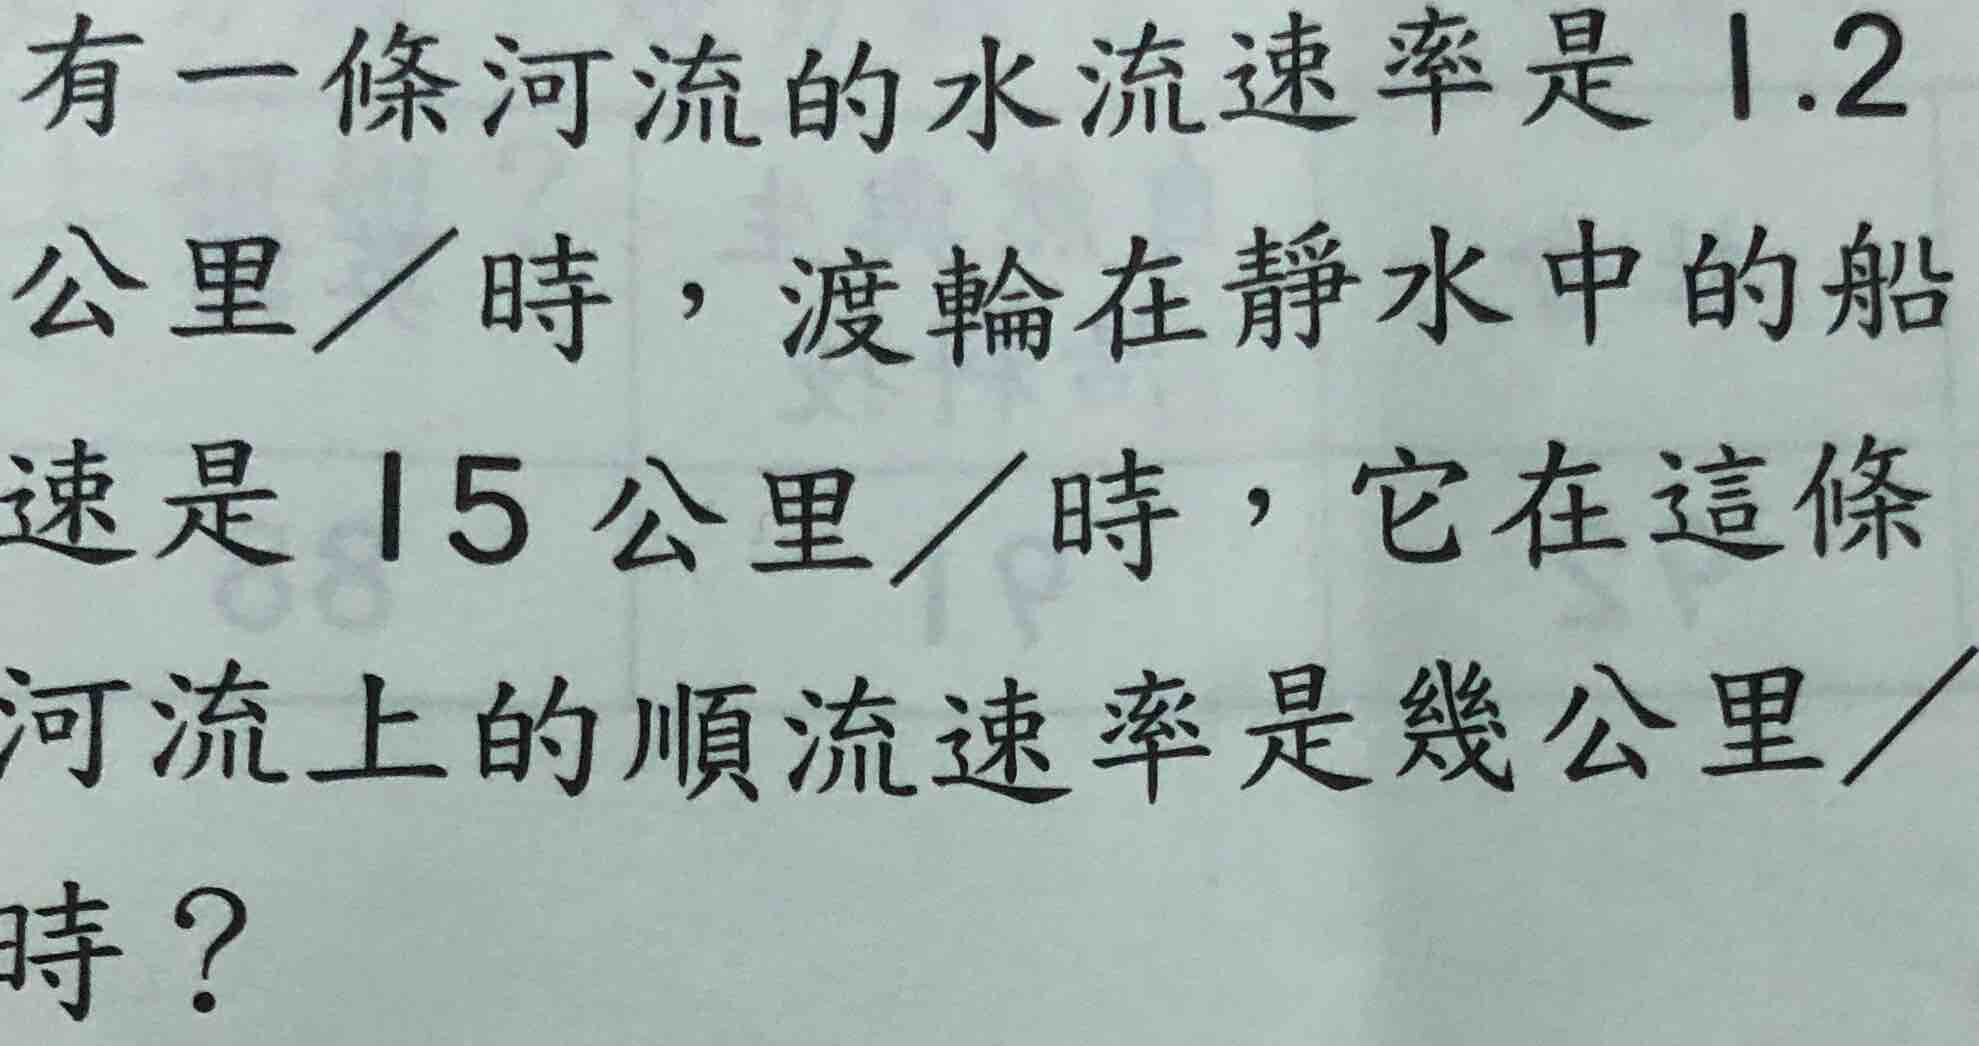 有一條河流的水流速率是 1.2
公里／時，渡輪在靜水中的船
速是 15 公里／時，它在這條
河流上的順流速率是幾公里／
時？